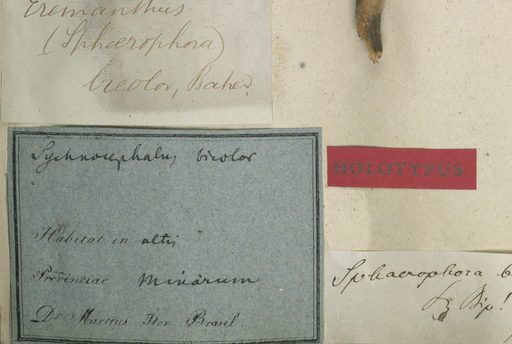 Eremanthus
(Sphaerophora)
bicolor, Baker
Sychnocephalus bicolor
Habitat in altis
Provinciae Minarum
Dr. Martius Iter Brasil.
HOLOTYPUS
Sphaerophora b
Sz Bip!